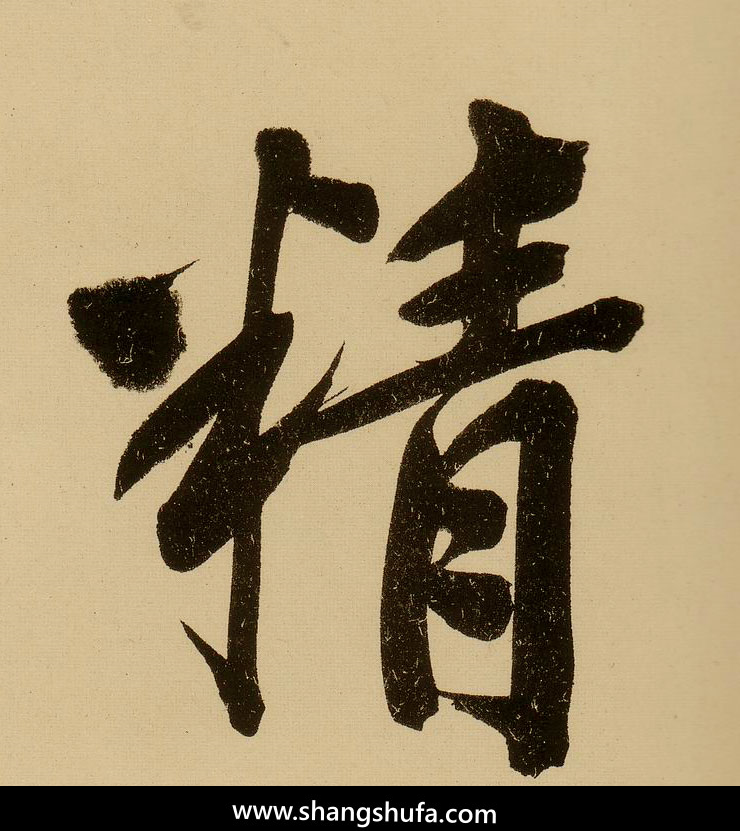 精
www.shangshufa.com